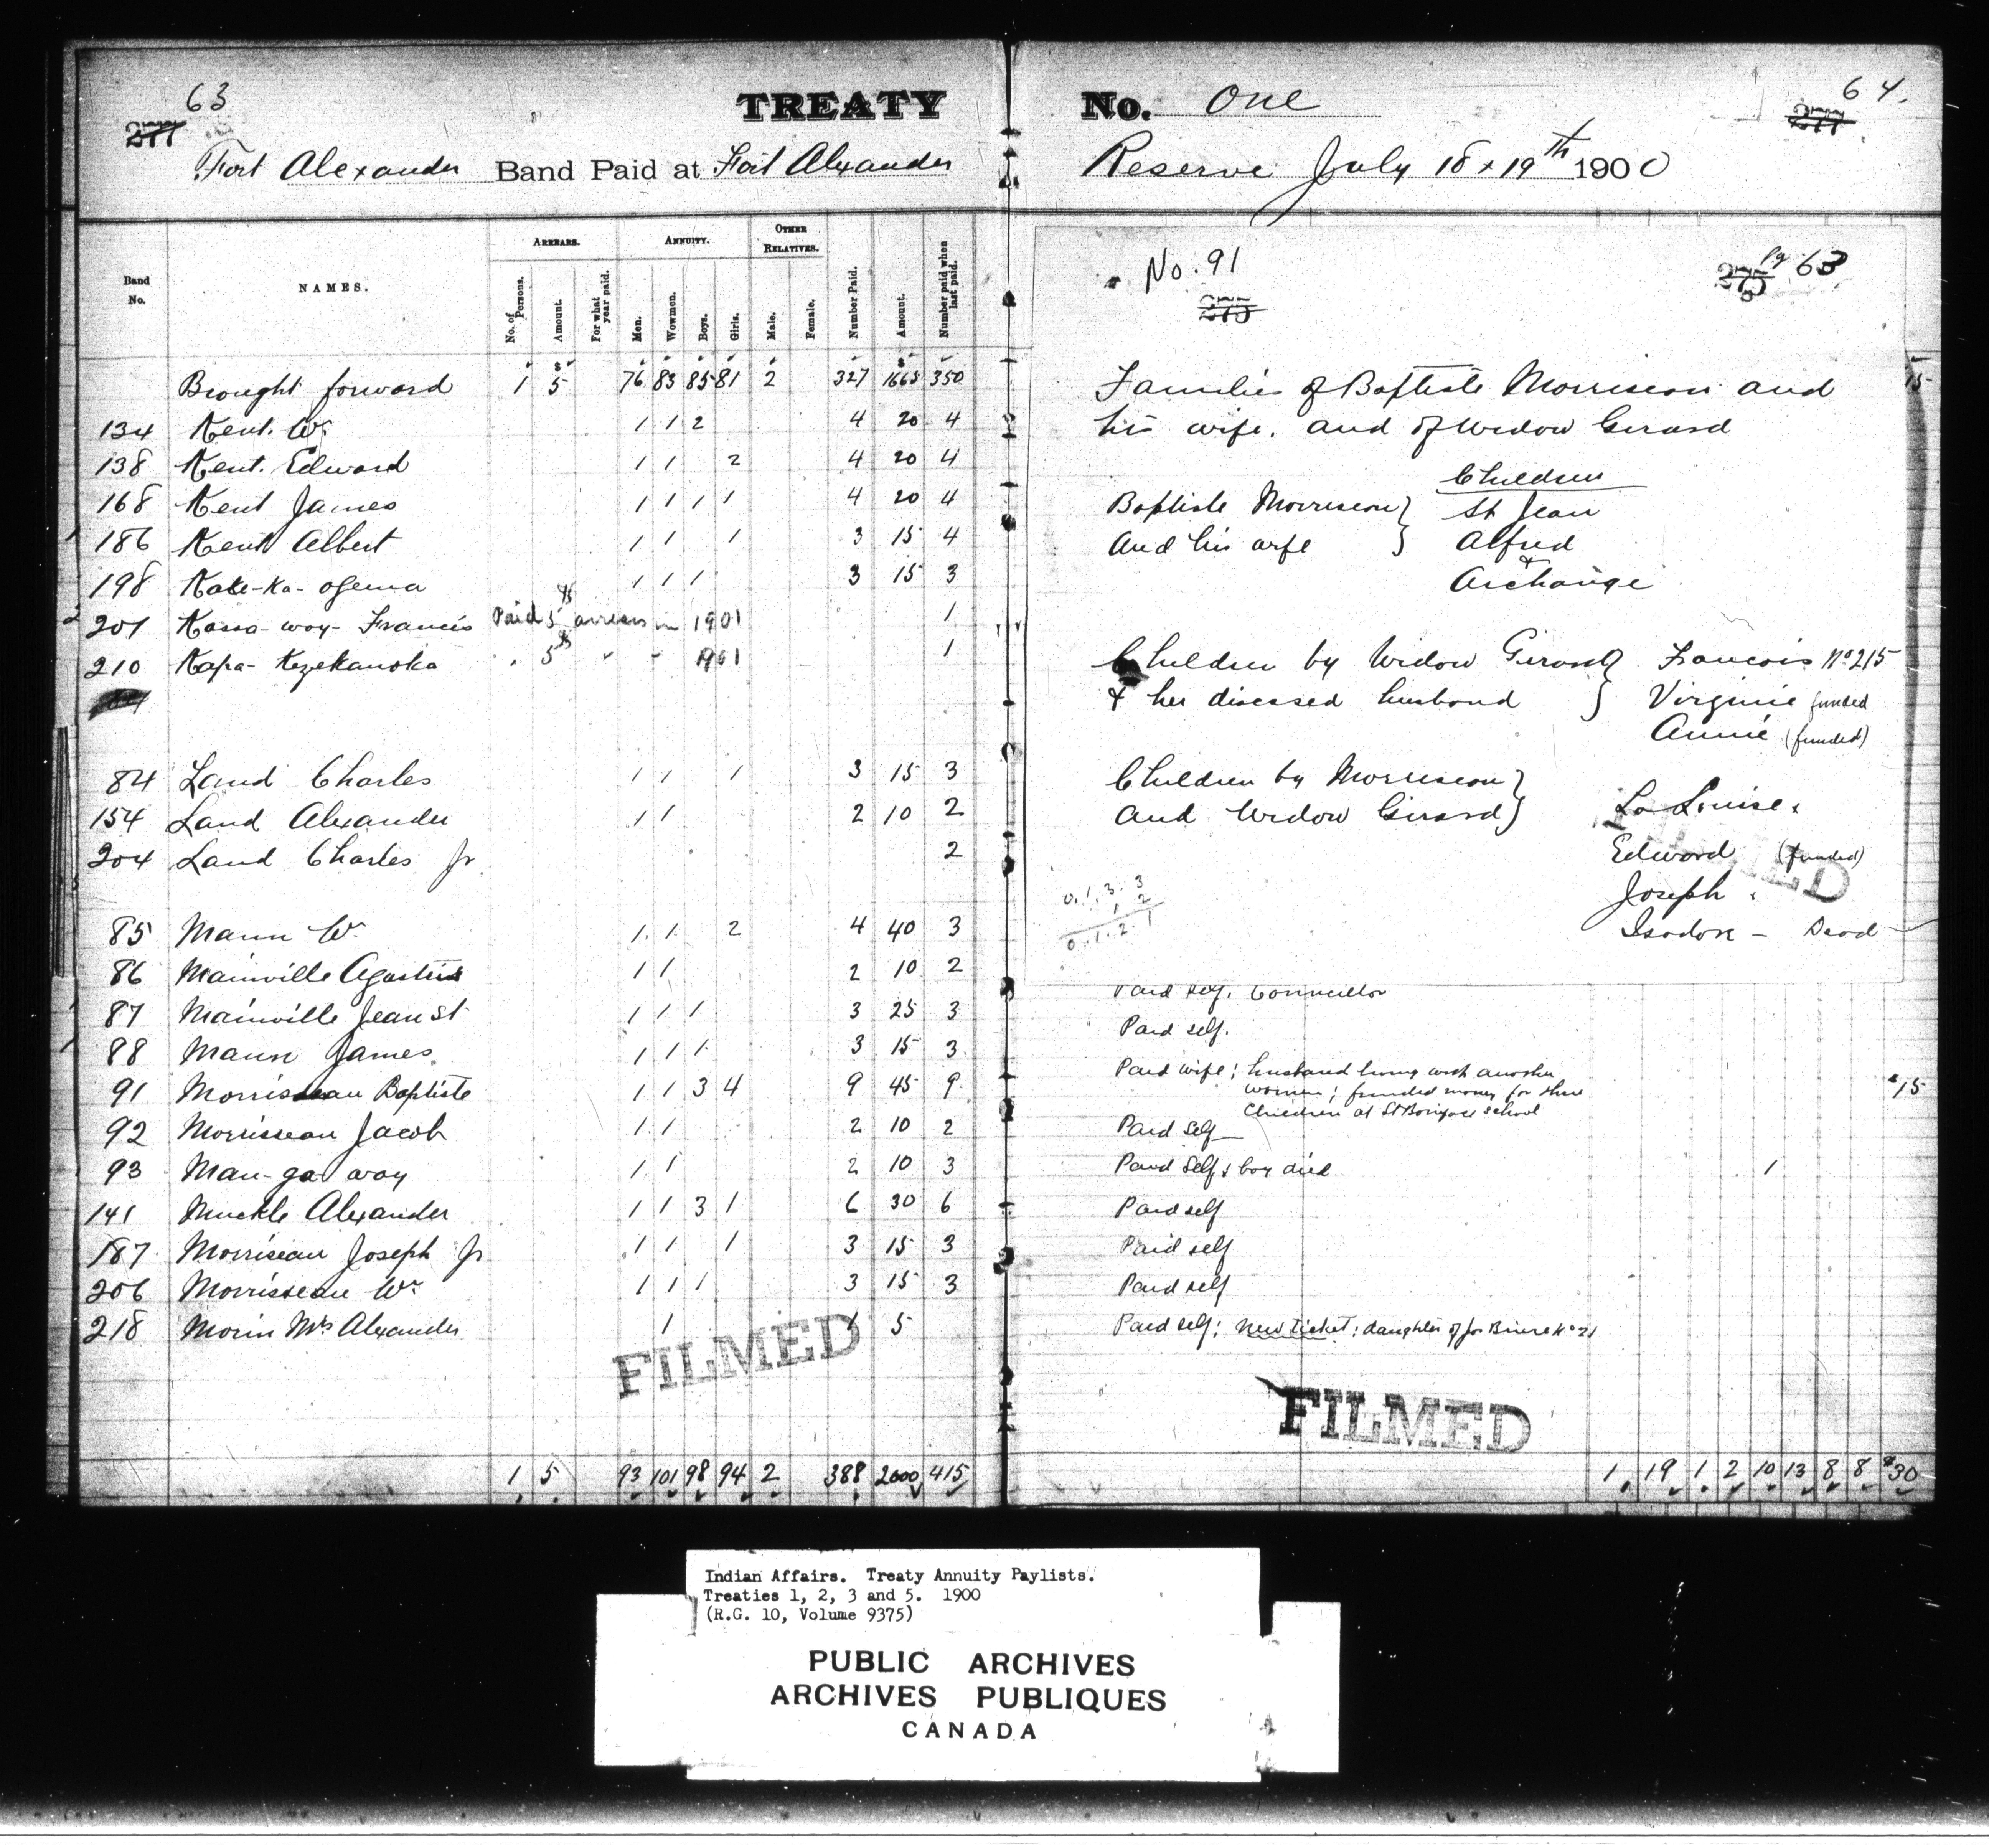 63
277
TREATY No. One
64.
277
Fort Alexander Band Paid at Fort Alexander Reserve July 18 + 19th 1900
Band No.
NAMES.
ARREARS.
ANNUITY.
OTHER RELATIVES.
No. of Persons.
Amount.
For what year paid.
Men.
Wowmen.
Boys.
Girls.
Male.
Female.
Number Paid.
Amount.
Number paid when last paid.
Brought forward 1 5 76 83 85 81 2 327 1665 350
134 Kent. W. 1 1 2 4 20 4
138 Kent. Edward 1 1 2 4 20 4
168 Kent James 1 1 1 1 4 20 4
186 Kent Albert 1 1 1 3 15 4
198 Kake-Ka-ogema 1 1 1 3 15 3
201 Kassa-way-Francis Paid 5 $ arrears in 1901 1
210 Kapa-Kezekanoka " 5 $ " " 1901 1
84 Land Charles 1 1 1 3 15 3
154 Land Alexander 1 1 2 10 2
204 Land Charles Jr 2
85 Mann W. 1 1 2 4 40 3
86 Mainville Agustin 1 1 2 10 2
87 Mainville Jean St 1 1 1 3 25 3
88 Mann James 1 1 1 3 15 3
91 Morrisseau Baptiste 1 1 3 4 9 45 9
92 Morrisseau Jacob 1 1 2 10 2
93 Man-ga way 1 1 2 10 3
141 Muckle Alexander 1 1 3 1 6 30 6
187 Morriseau Joseph Jr 1 1 1 3 15 3
206 Morrisseau W. 1 1 1 3 15 3
218 Morin Mrs Alexander 1 1 5
FILMED
1 5 93 101 98 94 2 388 2000 415
No. 91
275
Pg 63
275
Families of Baptiste Morriseau and
his wife. and of Widow Girard
Children
Baptiste Morriseau } St Jean
and his wife } Alfred
+
Archange
15
Children by Widow Girard } Francois No 215
+ her diseased husband } Virginie funded
Annie (funded)
Children by Morriseau }
and Widow Girard } La Louise.
Edward (funded)
FILMED
Joseph.
Isadore - Dead
0.1.3.3
1 2
0.1.2.1
Paid self. Councillor
Paid self.
Paid wife; husband living with another
women; funded money for three
Children at St Boniface school
$15
Paid self
Paid self; boy died 1
Paid self
Paid self
Paid self
Paid self; New ticket; daughter of Jos Briere No 21
FILMED
1 19 1 2 10 13 8 8 $30
Indian Affairs. Treaty Annuity Paylists.
Treaties 1, 2, 3 and 5. 1900
(R.G. 10, Volume 9375)
PUBLIC ARCHIVES
ARCHIVES PUBLIQUES
CANADA